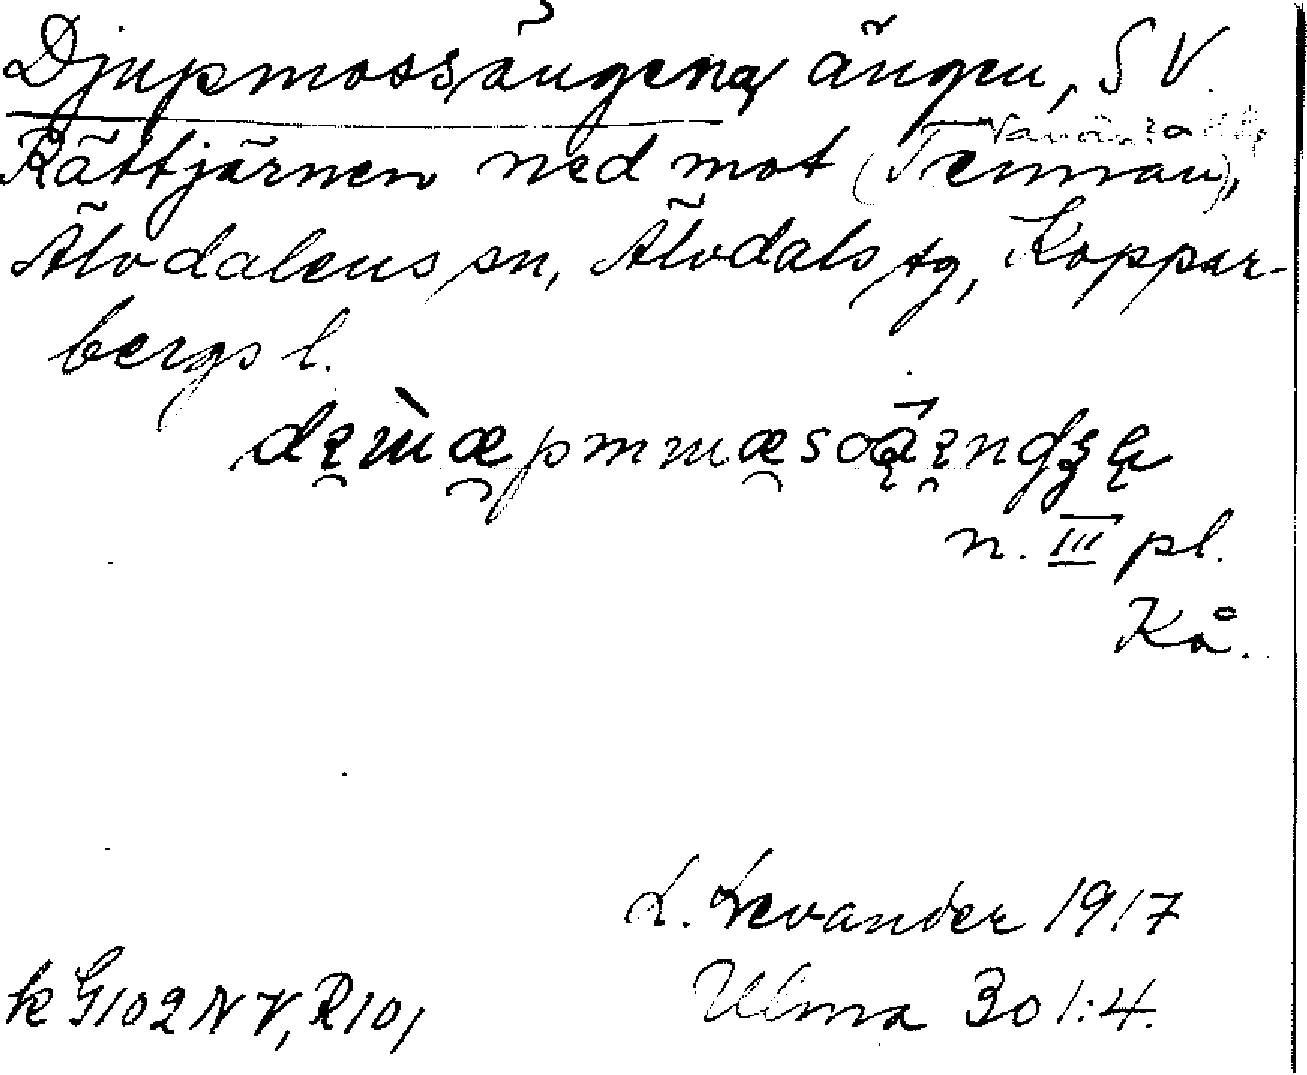 Djupmossängena, ängen, SV.
Rättjärnen ned mot (Tennan),
Älvdalens sn, Älvdals tg, Koppar-
bergs l.
n. III pl.
Kå.
L. Levander 1917
k G102NV, R10, Ulma 301:4.